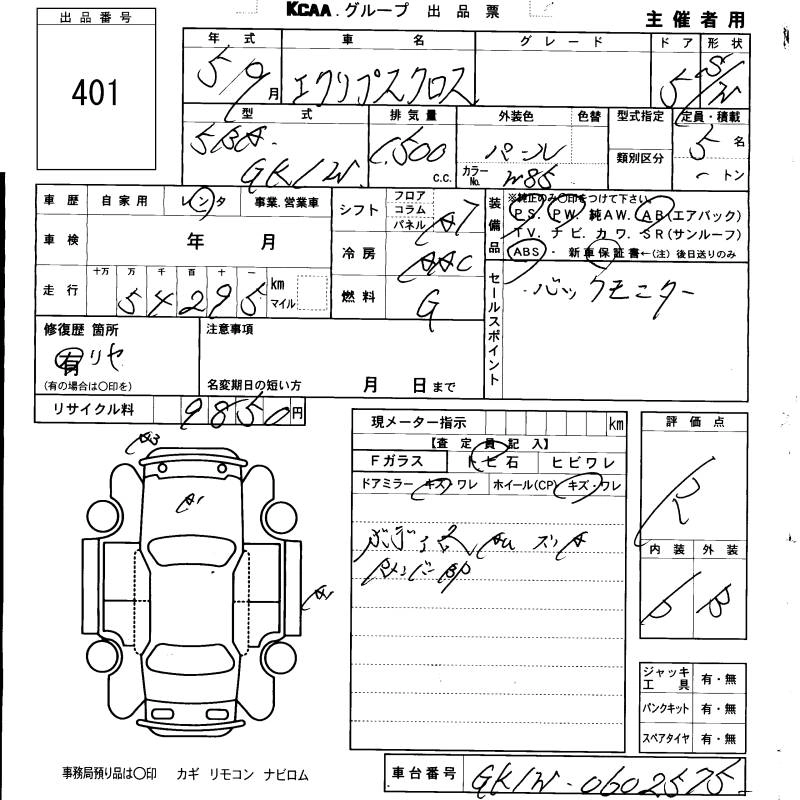 KCAA グループ 出品票
主催者用
出品番号
401
年式 車名 グレード ドア 形状
5/9月 エクリプスクロス 5 S/W
型式 排気量 外装色 色替 型式指定 定員・積載
5BA- GK1W 1,500 c.c. パール カラーNo. W85 類別区分 5名 - トン
車歴 自家用 レンタ 事業.営業車
車検 年 月
走行 十万 万 千 百 十 一
54295 km マイル
シフト フロア コラム パネル A7
冷房 AAC
燃料 G
装備品
※純正のみ〇印をつけて下さい。
PS. PW. 純AW. AB(エアバック)
TV. ナビ. カワ. SR(サンルーフ)
ABS・ 新車保証書←(注) 後日送りのみ
セールスポイント
バックモニター
修復歴 箇所
有 リヤ
(有の場合は〇印を)
注意事項
名変期日の短い方 月 日まで
リサイクル料 9850円
A3
A1
A1
現メーター指示 km
【査定員記入】
Fガラス トビ石 ヒビワレ
ドアミラー キズ・ワレ ホイール(CP) キズ・ワレ
評価点
R
内装 外装
B
ジャッキ 工具 有・無
パンクキット 有・無
スペアタイヤ 有・無
事務局預り品は〇印 カギ リモコン ナビロム
車台番号 GK1W-0602575